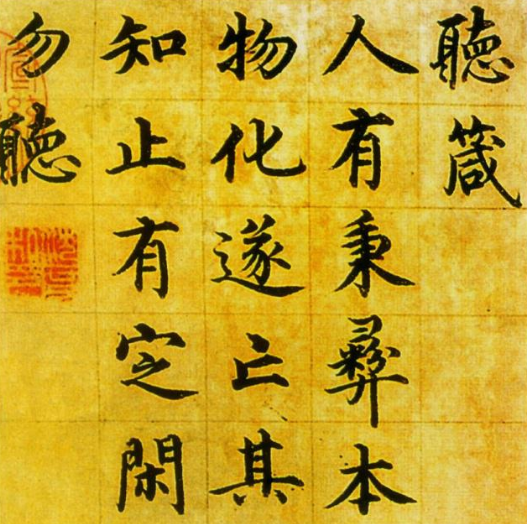 聽箴
人有秉彝本
物化遂亡其
知止有定閑
勿聽